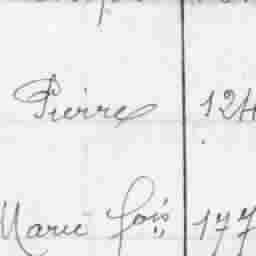 Pierre 124
Marie fois 177